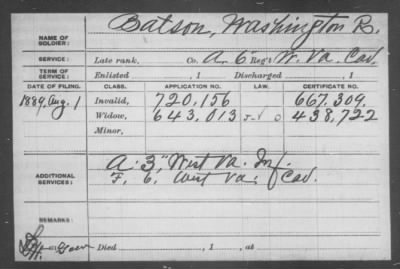 NAME OF SOLDIER: Batson, Washington R.
SERVICE: Late rank, Co. A. 6" Reg't W. Va. Cav.
TERM OF SERVICE: Enlisted , 1 Discharged , 1
DATE OF FILING. CLASS. APPLICATION NO. LAW. CERTIFICATE NO.
1889, Aug. 1 Invalid, 720,156 667,309,
Widow, 643,013 438,722
Minor,
ADDITIONAL SERVICES: A. 3," West Va. Inf.
F. 6, West Va. Cav.
REMARKS:
Died , 1 , at